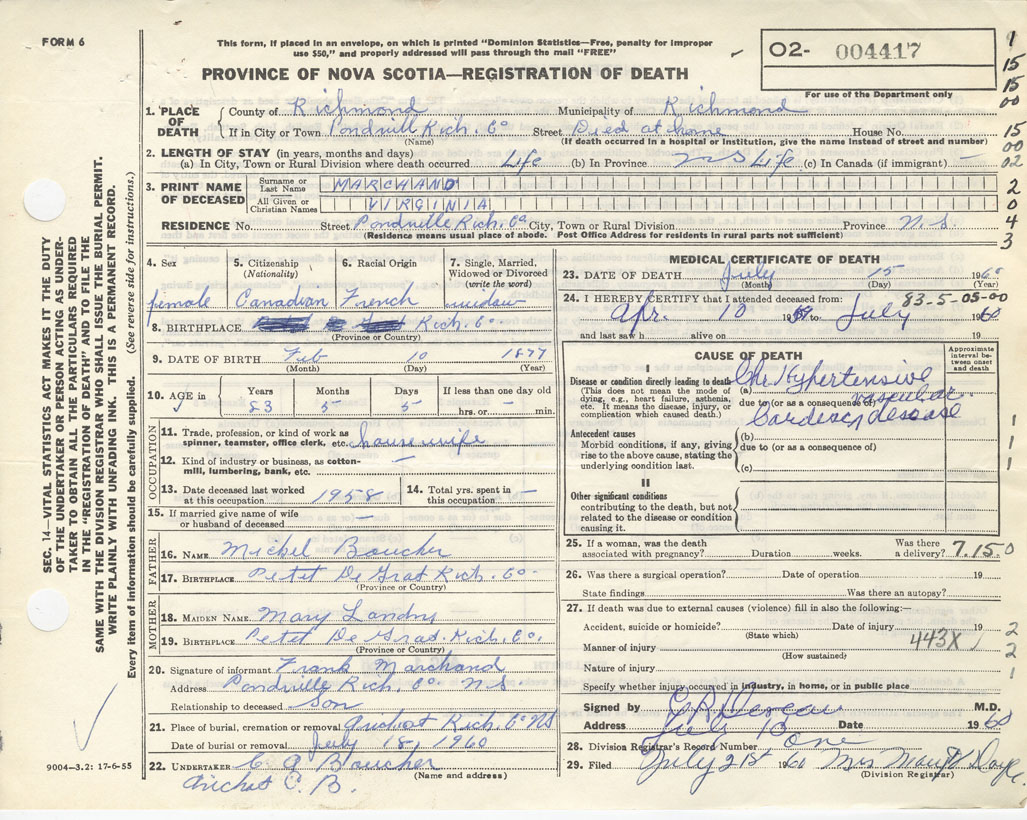 FORM 6
This form, if placed in an envelope, on which is printed "Dominion Statistics—Free, penalty for improper
use $50," and properly addressed will pass through the mail "FREE"
PROVINCE OF NOVA SCOTIA—REGISTRATION OF DEATH
O2- 004417
For use of the Department only
1
15
15
00
15
00
02
2
0
4
3
1. PLACE OF DEATH
County of Richmond Municipality of Richmond
If in City or Town Pondvill Rich. Co Street Died at home House No.
(Name) (If death occurred in a hospital or institution, give the name instead of street and number)
2. LENGTH OF STAY (in years, months and days)
(a) In City, Town or Rural Division where death occurred Life (b) In Province NS Life (c) In Canada (if immigrant) —
3. PRINT NAME OF DECEASED
Surname or Last Name MARCHAND
All Given or Christian Names VIRGINIA
RESIDENCE No. Street Pondville Rich. Co City, Town or Rural Division Province N.S.
(Residence means usual place of abode. Post Office Address for residents in rural parts not sufficient)
4. Sex 5. Citizenship (Nationality) 6. Racial Origin 7. Single, Married, Widowed or Divorced (write the word)
female Canadian French widow
8. BIRTHPLACE Rich. Co.
(Province or Country)
9. DATE OF BIRTH Feb 10 1877
(Month) (Day) (Year)
10. AGE in Years Months Days If less than one day old
83 5 5 hrs. or — min.
OCCUPATION
11. Trade, profession, or kind of work as spinner, teamster, office clerk, etc. housewife
12. Kind of industry or business, as cotton-mill, lumbering, bank, etc. —
13. Date deceased last worked at this occupation 1958 14. Total yrs. spent in this occupation —
15. If married give name of wife or husband of deceased —
FATHER
16. NAME Michel Boucher
17. BIRTHPLACE Petet De Grat Rich. Co.
(Province or Country)
MOTHER
18. MAIDEN NAME Mary Landry
19. BIRTHPLACE Petet De Grat Rich. Co.
(Province or Country)
20. Signature of informant Frank Marchand
Address Pondville Rich. Co N.S
Relationship to deceased Son
21. Place of burial, cremation or removal Arichat Rich. Co NS
Date of burial or removal July 18, 1960
22. UNDERTAKER C A Boucher
(Name and address)
Arichat C. B.
MEDICAL CERTIFICATE OF DEATH
23. DATE OF DEATH July 15 1960
(Month) (Day) (Year)
24. I HEREBY CERTIFY that I attended deceased from: 83-5-05-00
Apr. 10 1959 to July 1960
and last saw h alive on 19
CAUSE OF DEATH
Approximate interval between onset and death
I
Disease or condition directly leading to death
(This does not mean the mode of dying, e.g., heart failure, asthenia, etc. It means the disease, injury, or complication which caused death.)
Chr Hypertensive
due to (or as a consequence of) vascular
disease
Antecedent causes
Morbid conditions, if any, giving rise to the above cause, stating the underlying condition last.
(b)
due to (or as a consequence of)
(c)
II
Other significant conditions
contributing to the death, but not related to the disease or condition causing it.
1
1
1
25. If a woman, was the death associated with pregnancy? Duration weeks. Was there a delivery? 7.15 0
26. Was there a surgical operation? Date of operation 19
State findings Was there an autopsy?
27. If death was due to external causes (violence) fill in also the following:—
Accident, suicide or homicide? Date of injury 19 2
(State which) 443X
Manner of injury 2
(How sustained)
Nature of injury 1
Specify whether injury occurred in industry, in home, or in public place
Signed by M.D.
Address Date 1960
28. Division Registrar's Record Number One
29. Filed July 21st 1960 Mrs
(Division Registrar)
SEC. 14—VITAL STATISTICS ACT MAKES IT THE DUTY
OF THE UNDERTAKER OR PERSON ACTING AS UNDER-
TAKER TO OBTAIN ALL THE PARTICULARS REQUIRED
IN THE "REGISTRATION OF DEATH" AND TO FILE THE
SAME WITH THE DIVISION REGISTRAR WHO SHALL ISSUE THE BURIAL PERMIT.
WRITE PLAINLY WITH UNFADING INK. THIS IS A PERMANENT RECORD.
Every item of information should be carefully supplied. (See reverse side for instructions.)
9004-3.2: 17-6-55